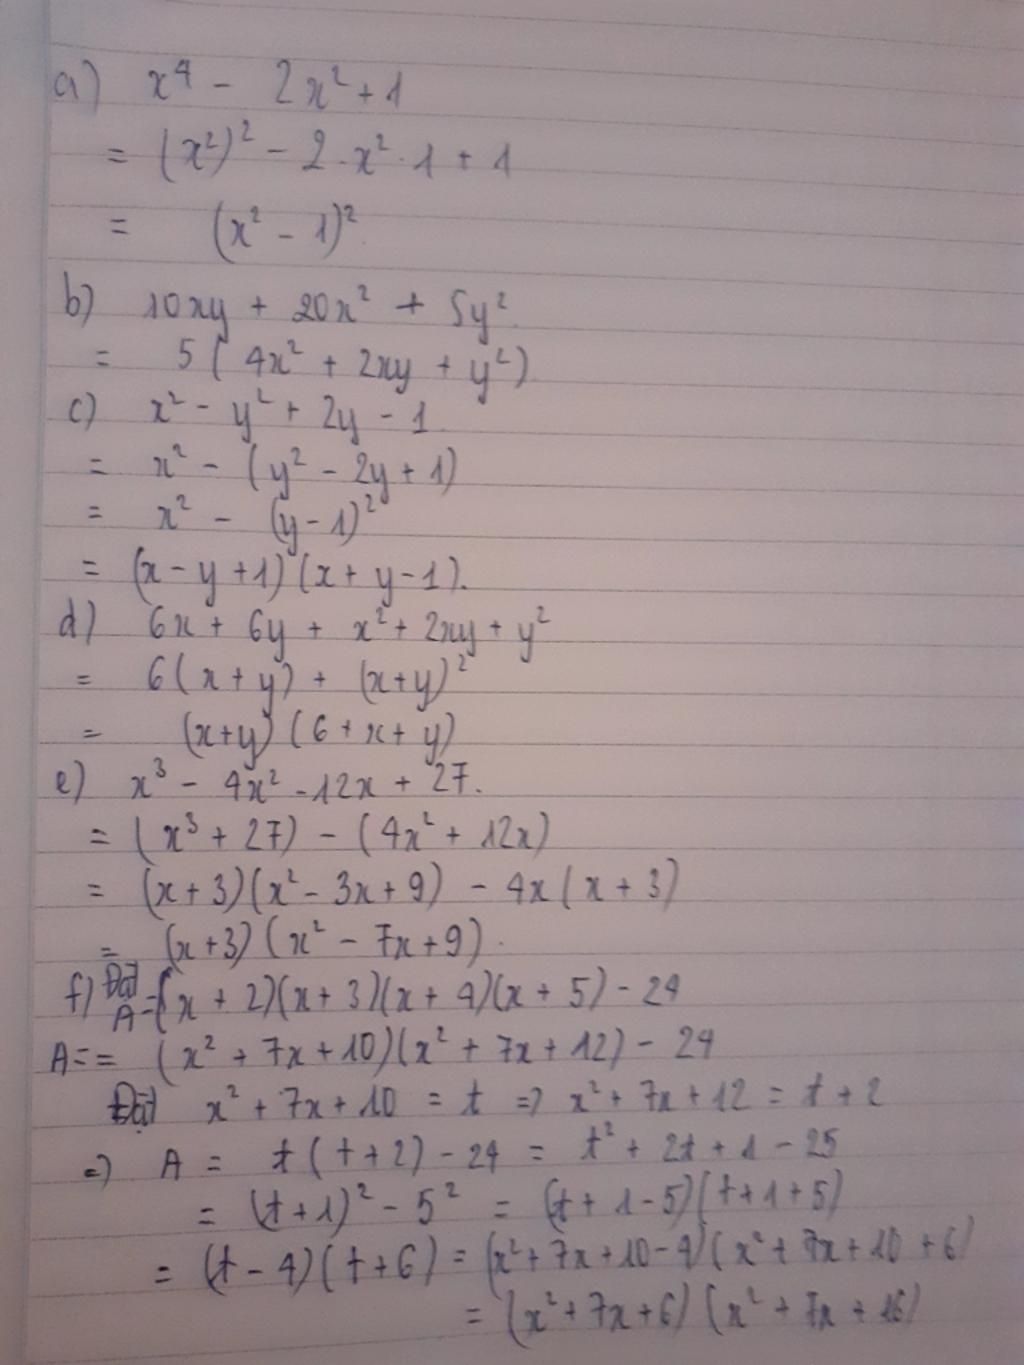 a) x⁴ - 2x² + 1
= (x²)² - 2 . x² . 1 + 1
= (x² - 1)²
b) 10xy + 20x² + 5y²
= 5 ( 4x² + 2xy + y² )
c) x² - y² + 2y - 1
= x² - (y² - 2y + 1)
= x² - (y - 1)²
= (x - y + 1) (x + y - 1).
d) 6x + 6y + x² + 2xy + y²
= 6 ( x + y ) + (x+y)²
= (x+y) ( 6 + x + y )
e) x³ - 4x² - 12x + 27.
= ( x³ + 27) - (4x² + 12x)
= (x + 3)(x² - 3x + 9) - 4x ( x + 3 )
= (x+3) ( x² - 7x + 9 ).
f) Đặt A = (x + 2)(x + 3)(x + 4)(x + 5) - 24
A = = (x² + 7x + 10)(x² + 7x + 12) - 24
Đặt x² + 7x + 10 = t => x² + 7x + 12 = t + 2
=) A = t ( t + 2 ) - 24 = t² + 2t + 1 - 25
= (t + 1)² - 5² = (t + 1 - 5)(t + 1 + 5)
= (t - 4) ( t + 6 ) = (x² + 7x + 10 - 4) ( x² + 7x + 10 + 6 )
= (x² + 7x + 6) (x² + 7x + 16)